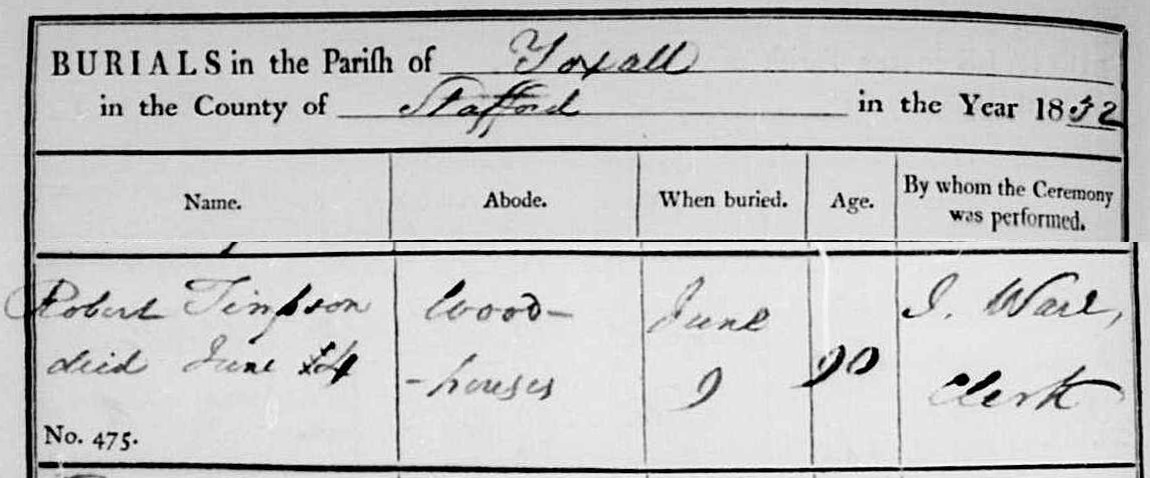 BURIALS in the Pariſh of Yoxall
in the County of Stafford in the Year 1832
Name. Abode. When buried. Age. By whom the Ceremony was performed.
Robert Timpson Wood- June J. Ward,
died June 4 -houses 9 90 Clerk
No. 475.